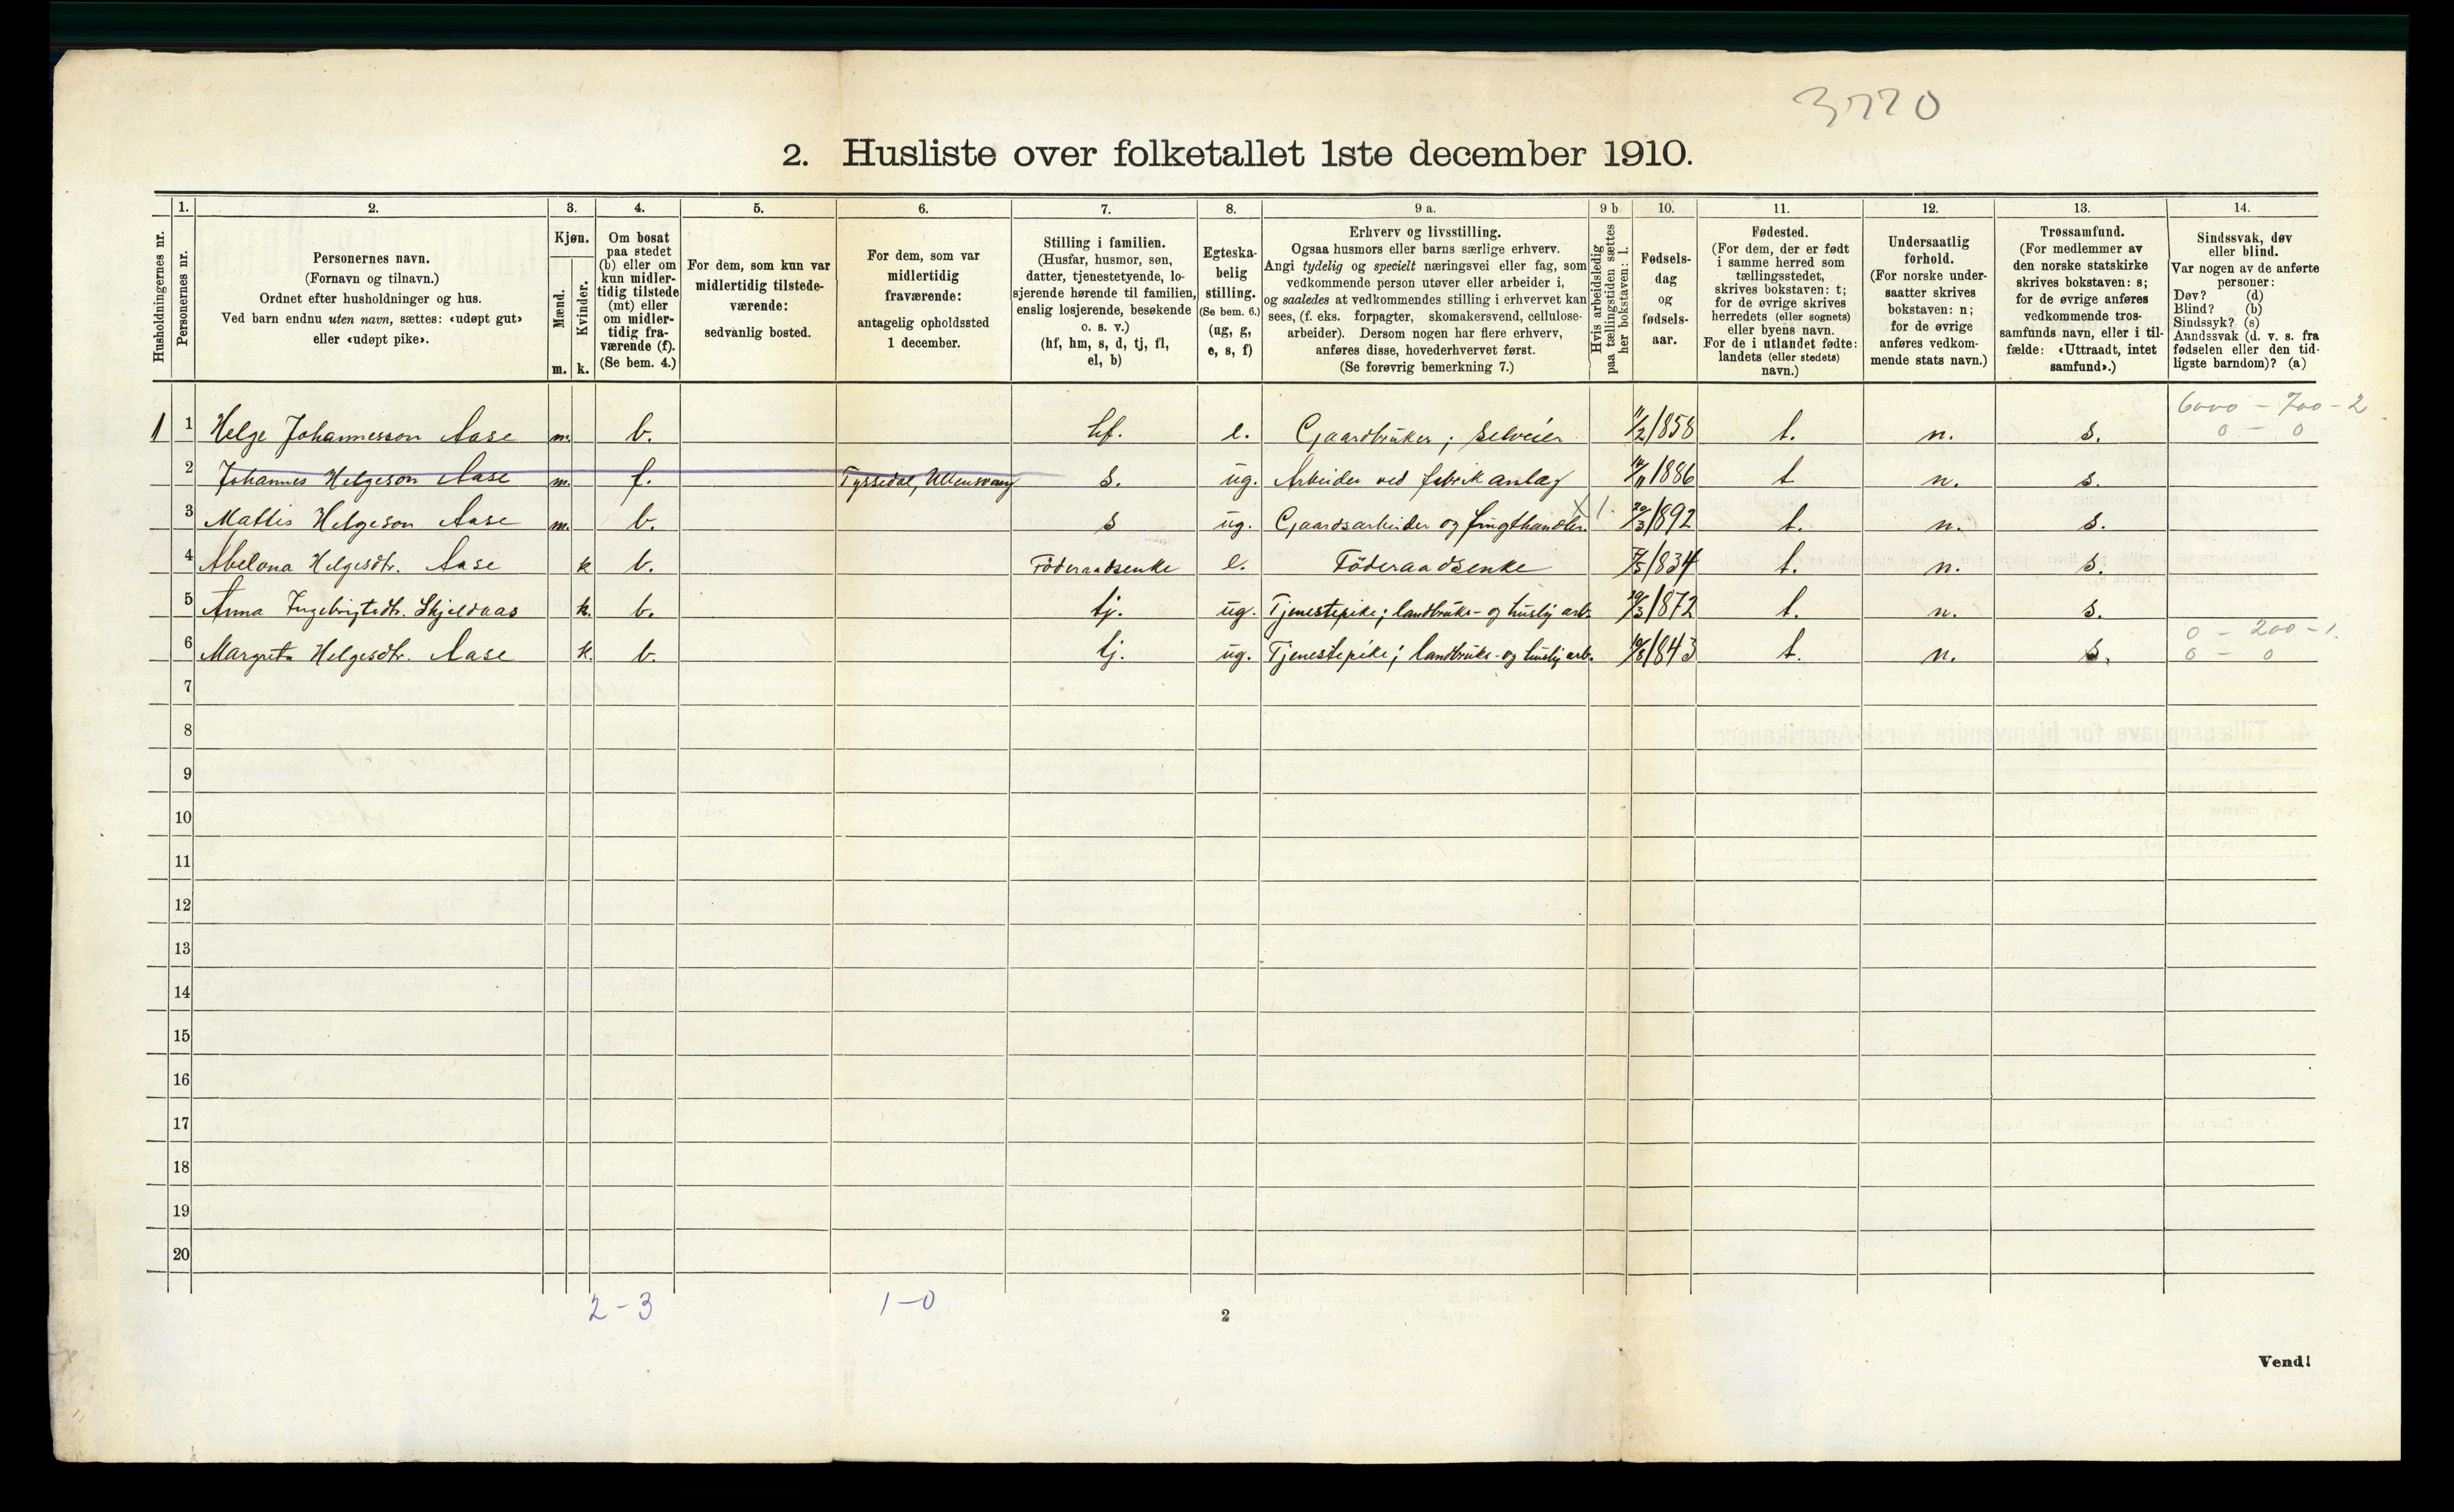 3720
2. Husliste over folketallet 1ste december 1910.
Husholdningernes nr.
1.
Personernes nr.
2.
Personernes navn.
(Fornavn og tilnavn.)
Ordnet efter husholdninger og hus.
Ved barn endnu uten navn, sættes: «udøpt gut»
eller «udøpt pike».
3.
Kjøn.
Mænd.
Kvinder.
m. k.
4.
Om bosat
paa stedet
(b) eller om
kun midler-
tidig tilstede
(mt) eller
om midler-
tidig fra-
værende (f).
(Se bem. 4.)
5.
For dem, som kun var
midlertidig tilstede-
værende:
sedvanlig bosted.
6.
For dem, som var
midlertidig
fraværende:
antagelig opholdssted
1 december.
7.
Stilling i familien.
(Husfar, husmor, søn,
datter, tjenestetyende, lo-
sjerende hørende til familien,
enslig losjerende, besøkende
o. s. v.)
(hf, hm, s, d, tj, fl,
el, b)
8.
Egteska-
belig
stilling.
(Se bem. 6.)
(ug, g,
e, s, f)
9 a.
Erhverv og livsstilling.
Ogsaa husmors eller barns særlige erhverv.
Angi tydelig og specielt næringsvei eller fag, som
vedkommende person utøver eller arbeider i,
og saaledes at vedkommendes stilling i erhvervet kan
sees, (f. eks. forpagter, skomakersvend, cellulose-
arbeider). Dersom nogen har flere erhverv,
anføres disse, hovederhvervet først.
(Se forøvrig bemerkning 7.)
9 b
Hvis arbeidsledig
paa tællingstiden sættes
her bokstaven: l.
10.
Fødsels-
dag
og
fødsels-
aar.
11.
Fødested.
(For dem, der er født
i samme herred som
tællingsstedet,
skrives bokstaven: t;
for de øvrige skrives
herredets (eller sognets)
eller byens navn.
For de i utlandet fødte:
landets (eller stedets)
navn.)
12.
Undersaatlig
forhold.
(For norske under-
saatter skrives
bokstaven: n;
for de øvrige
anføres vedkom-
mende stats navn.)
13.
Trossamfund.
(For medlemmer av
den norske statskirke
skrives bokstaven: s;
for de øvrige anføres
vedkommende tros-
samfunds navn, eller i til-
fælde: «Uttraadt, intet
samfund».)
14.
Sindssvak, døv
eller blind.
Var nogen av de anførte
personer:
Døv? (d)
Blind? (b)
Sindssyk? (s)
Aandssvak (d. v. s. fra
fødselen eller den tid-
ligste barndom)? (a)
6000 - 700 - 2
0 - 0
1 1 Helge Johannesson Aase m. b. hf. e. Gaardbruker; selveier 11/2 1858 t. n. s.
2 Johannes Helgeson Aase m. f. Tyssedal, Ullensvang s. ug. Arbeider ved fabrikanlæg 1886 t n. s.
3 Mattis Helgeson Aase m. b. s ug. Gaardsarbeider og frugthandler X 1. 20/3 1892 t. n. s.
4 Abelona Helgesdtr. Aase k b. Föderaadsenke e. Föderaadsenke 7/5 1834 t. n. s.
5 Anna Ingebrigtsdtr. Skjeldaas k. b. tj. ug. Tjenestepike; landbruks- og huslig arb. 1872 t. n. s.
0 - 200 - 1.
6 Margreta Helgesdtr. Aase k. b. tj. ug. Tjenestepike; landbruks- og huslig arb. 1843 t. n. s.
0 - 0
7
8
9
10
11
12
13
14
15
16
17
18
19
20
2 - 3 1 - 0
2
Vend!